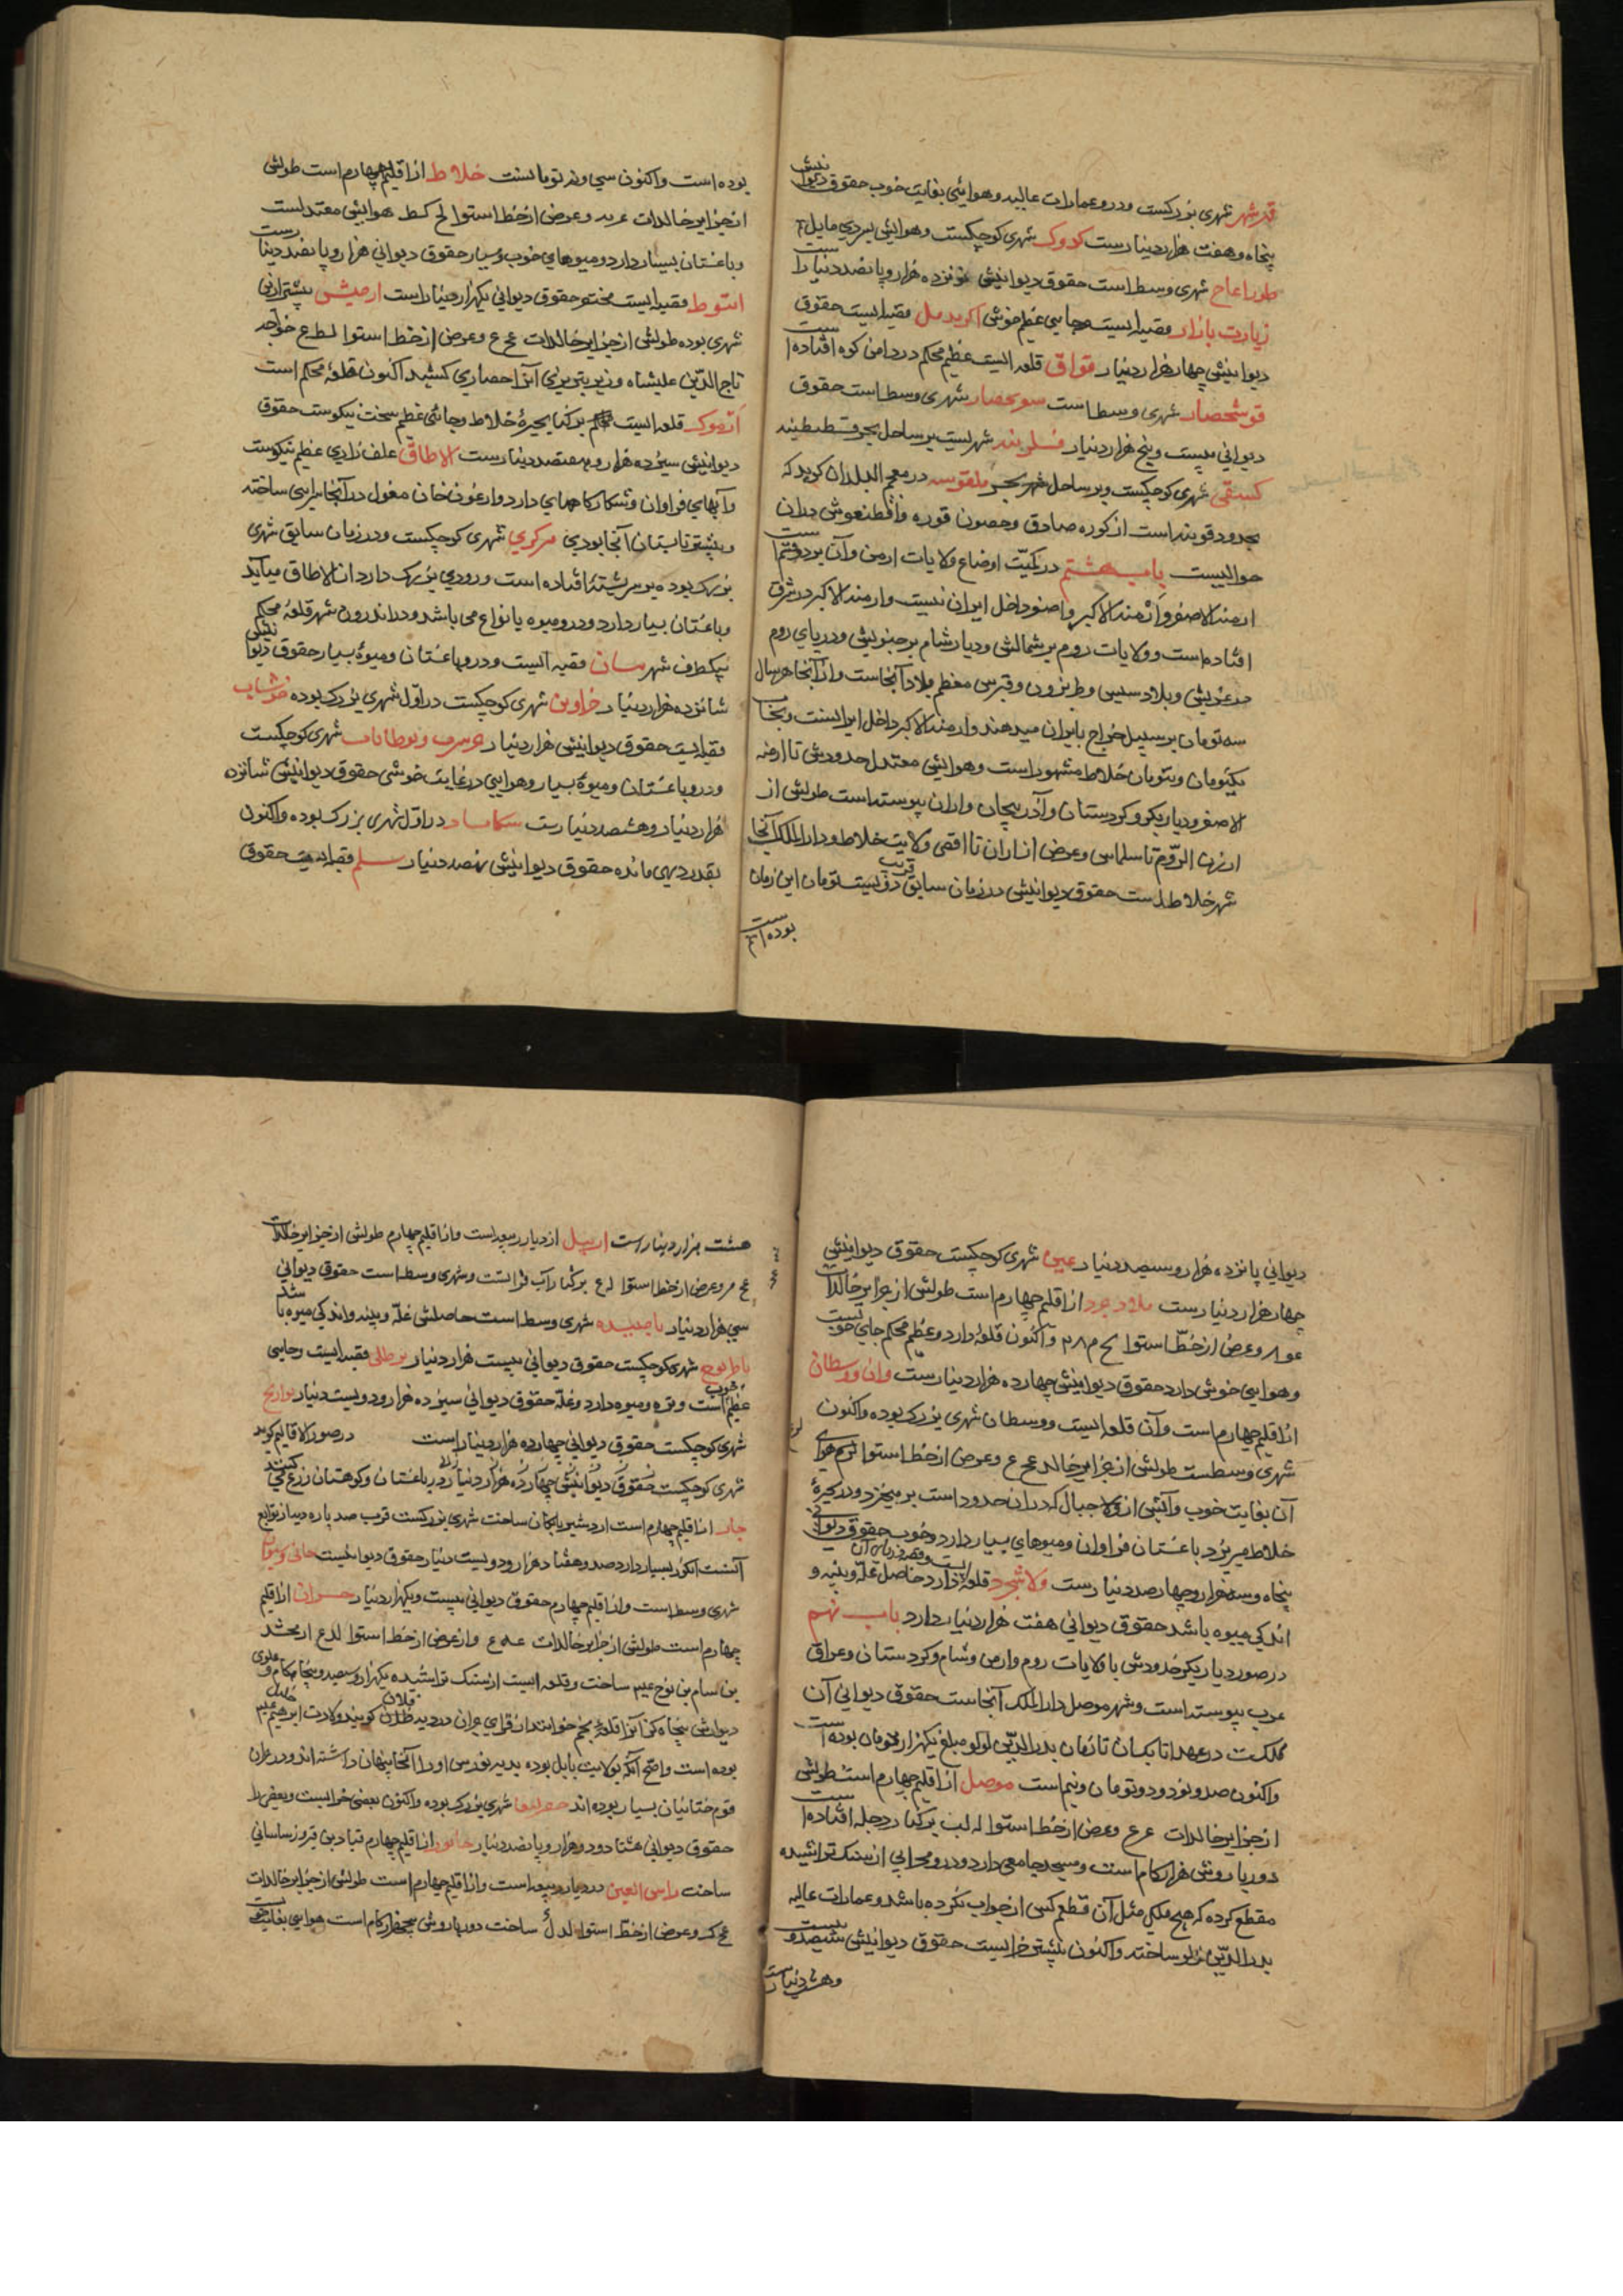 قیرشهر شهری بزرکست ودرو عمارات عالیه وهوائی بغایت خوب حقوق دیوانیش
پنجاه وهفت هزار دینارست کدوک شهری کوچکست وهوایش بسردی مایل
شهری وسطاست حقوق دیوانیش نوزده هزار و پانصد دینار است
زیارت بازار قصبه ایست وجایی عظیم خوش اکرید مل قصبه ایست حقوق
دیوانیش چهار هزار دینار قواق قلعه ایست عظیم محکم در دامن کوه افتاده است
قوشحصار شهری وسطاست سویحصار شهری وسطاست حقوق
دیوانی بیست وپنج هزار دینار شهریست بر ساحل بحر قسطنطینیه
شهری کوچکست وبر ساحل بحر ملقوبیه در معجم البلدان کوید که
حدود قونیه است از کوره صادق وحصون قوره وانطیغوش دران
حوالیست باب هشتم در کمیت اوضاع ولایات ارمن وآن بر دو قسم است
ارمنیة الاصغر وارمنیة الاکبر واصغر داخل ایران نیست وارمنیة الاکبر در شرق
افتاده است وولایات روم بر شمالش ودیار شام بر جنوبش ودریای روم
بر غربیش وبلاد سیس وطربزون وقبرس معظم بلاد آنجاست واز آنجا هر سال
سه تومان بر سبیل خراج بایران میدهند وارمنیة الاکبر داخل ایرانست وبخا
یکتومان وبتومان خلاط مشهور است وهوایش معتدل حدودش تا ارمنیه
الاصغر ودیار بکر وکردستان وآذربیجان واران پیوسته است طولش از
ارزن الروم تا سلماس وعرض از اران تا اقصی ولایت خلاط ودار الملک آنجا
شهر خلاطست حقوق دیوانیش در زمان سابق قریب دویست تومان این زمان
بوده است
بوده است واکنون سی ونه تومانست خلاط از اقلیم چهارم است طولش
از جزایر خالدات عرض از خط استوا لح کط هوایش معتدلست
وباغستان بسیار دارد ومیوهای خوب وبسیار حقوق دیوانی هزار و پانصد دینارست
قصبه ایست مختصر حقوق دیوانی یکهزار دینار است ارجیش پیشتر ازین
شهری بوده طولش از جزایر خالدات عح ع وعرض از خط استوا لط ع خواجه
تاج الدین علیشاه وزیر تبریزی آنرا حصاری کشید اکنون قلعهٔ محکم است
ارموک قلعه ایست بر کنار بحیرهٔ خلاط وجائی عظیم سخت نیکوست حقوق
دیوانیش سیزده هزار و هفتصد دینار ست الاطاق علف زاری عظیم نیکوست
وآبهای فراوان وشکارکاههای دارد وارغون خان مغول در آنجا سرایی ساخته
وبیشتر تابستان آنجا بودی برکری شهری کوچکست ودر زمان سابق شهری
بزرک بوده بر سر پشتهٔ افتاده است ورودی بزرک دارد از الاطاق میآید
وباغستان بسیار دارد ودرو میوه بانواع می باشد ودر اندرون شهر قلعهٔ محکم
بیکطرف شهر قصبه ایست ودرو باغستان ومیوهٔ بسیار حقوق دیوانیش
شانزده هزار دینار خرادین شهری کوچکست در اول شهری بزرک بوده خوشاب
قصبه ایست حقوق دیوانیش هزار دینار شهری کوچکست
ودرو باغستان ومیوهٔ بسیار وهوایی در غایت خوشی حقوق دیوانیش شانزده
هزار دینار وهشصد دینارست در اول شهری بزرک بوده واکنون
بقدر دیهی مانده حقوق دیوانیش نهصد دینار سلم قصبه ایست حقوق
دیوانی پانزده هزار وسیصد دینار عین شهری کوچکست حقوق دیوانیش
چهار هزار دینارست ملاذجرد از اقلیم چهارم است طولش از جزایر خالدات
وعرض از خط استوا واکنون قلعهٔ دارد عظیم محکم جای خوبست
وهوایی خوش دارد حقوق دیوانیش چهارده هزار دینارست وان ووسطان
از اقلیم چهارم است وآن قلعه ایست ووسطان شهری بزرک بوده واکنون
شهری وسطست طولش از جزایر خالد عح ع وعرض از خط استوا هوای
آن بغایت خوب وآبش از جبال که در ان حدود است بر میخزد ودر بحیرهٔ
خلاط میریزد باغستان فراوان ومیوهای بسیار دارد وخوب حقوق دیوانی
پنجاه وسه هزار وچهار صد دینارست ولاشجرد قلعهٔ دارد حاصل غله وپنبه و
اندکی میوه باشد حقوق دیوانی هفت هزار دینار دارد باب نهم
در صور دیار بکر حدودش با ولایات روم وارمن وشام وکردستان وعراق
عرب پیوسته است وشهر موصل دار الملک آنجاست حقوق دیوانی آن
مملکت در عهد اتابکان تا زمان بدر الدین لولو مبلغ یکهزار تومان بوده است
واکنون صد ونود ودو تومان ونیم است موصل از اقلیم چهارم است طولش
از جزایر خالدات عرع وعرض از خط استوا له لب بر کنار دجله افتاده است
دور بارویش هزار کام است ومسجد جامعی دارد ودرو محرابی از سنک تراشیده
مقطع کرده که هیچ مثل آن قطع کسی از چوب نکرده باشد وعمارات عالیه
بدر الدین لولو ساخته واکنون بیشتر خرابست حقوق دیوانیش سیصد و بیست
وهشت دینارست
هشت هزار دینار است اربیل از دیار ربیعه است واز اقلیم چهارم طولش از جزایر خالدات
وعرض از خط استوا بر کنار آب فراتست وشهری وسطاست حقوق دیوانی
سی هزار دینار شهری وسطاست حاصلش غله وپنبه واندکی میوه باشد
شهری کوچکست حقوق دیوانی بیست هزار دینار برطلی قصبه ایست وجایی
عظیم خوبست ومیوه دارد وغله حقوق دیوانی سیزده هزار ودویست دینار بوازیج
شهری کوچکست حقوق دیوانی چهارده هزار دینار است در صور الاقالیم کوید
شهری کوچکست حقوق دیوانیش چهارده هزار دینار باغستان وکوهستان زرع کنند
از اقلیم چهارم است اردشیر بابکان ساخت شهری بزرکست قرب صد پاره دیه از توابع
آنست انکور بسیار دارد صد وهفتاد هزار ودویست دینار حقوق دیوانیست
شهری وسط است واز اقلیم چهارم حقوق دیوانی بیست ویکهزار دینار حران از اقلیم
چهارم است طولش از جزایر خالدات وعرض از خط استوا ارفحشد
بن سام بن نوح عیم ساخت وقلعه ایست از سنک تراشیده یکهزار وسیصد وپنجاه کام
بوده است واصح آنکه بولایت بابل بوده پدر او را آنجا پنهان داشته اند ودر حران
قوم صابئان بسیار بوده اند شهری بزرک بوده واکنون بعضی خرابست وبعضی را
حقوق دیوانی هشتاد ودو هزار و پانصد دینار خابور از اقلیم چهارم قباد بن فیروز ساسانی
ساخت راس العین در دیار ربیعه است واز اقلیم چهارم است طولش از جزایر خالدات
وعرض از خط استوا ساخت دور بارویش پنجهزار کام است هوایی بغایت خوبست